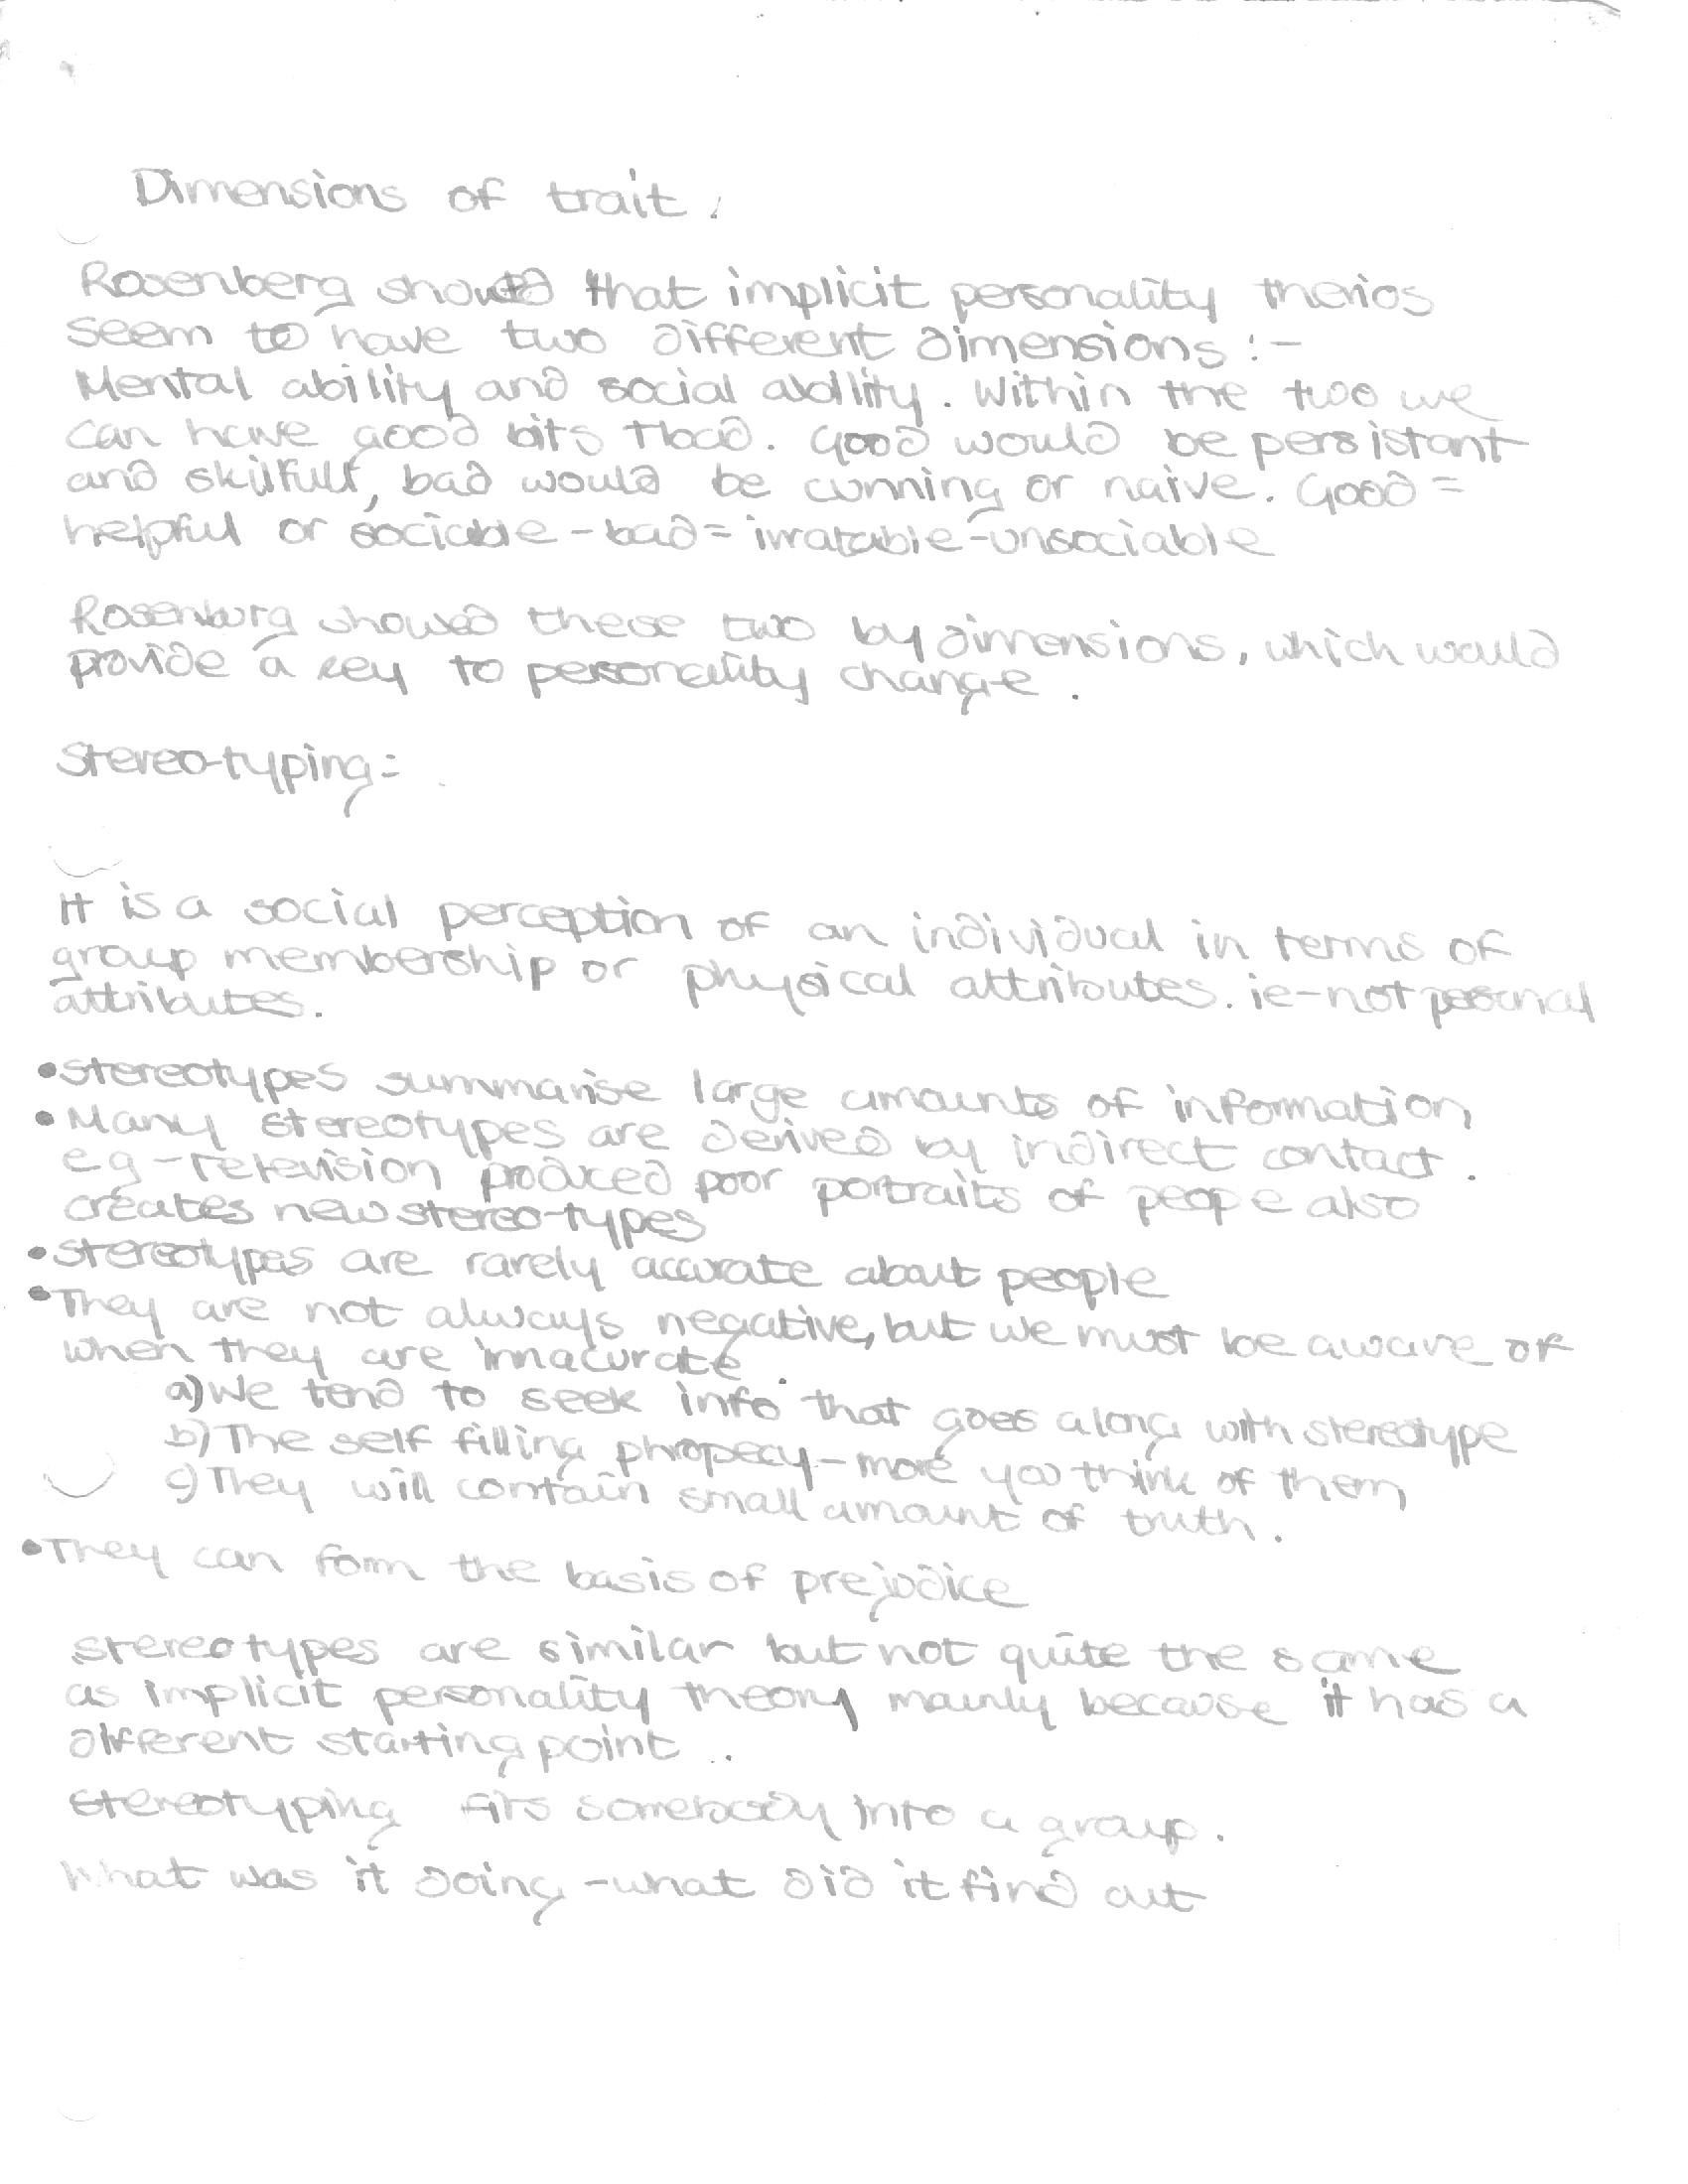 Dimensions of trait.
Rosenberg showed that implicit personality therios
seem to have two different dimensions :-
Mental ability and social ability. Within the two we
can have good bits + bad. Good would be persistant
and skilfull, bad would be cunning or naive. Good =
helpful or sociable - bad = irratable - unsociable
Rosenburg showed these two by dimensions, which would
provide a key to personality change.
Stereo-typing =
It is a social perception of an individual in terms of
group membership or physical attributes. ie - not personal
attributes.
• Stereotypes summarise large amounts of information
• Many stereotypes are derived by indirect contact.
eg - Television produced poor portraits of peope also
creates new stereo-types
• Stereotypes are rarely accurate about people
• They are not always negative, but we must be aware of
when they are innacurate.
a) We tend to seek info that goes along with stereotype
b) The self filling phropecy - more you think of them
c) They will contain small amount of truth.
• They can form the basis of prejudice
Stereotypes are similar but not quite the same
as implicit personality theory mainly because it has a
different starting point.
Stereotyping fits somebody into a group.
What was it doing - what did it find out